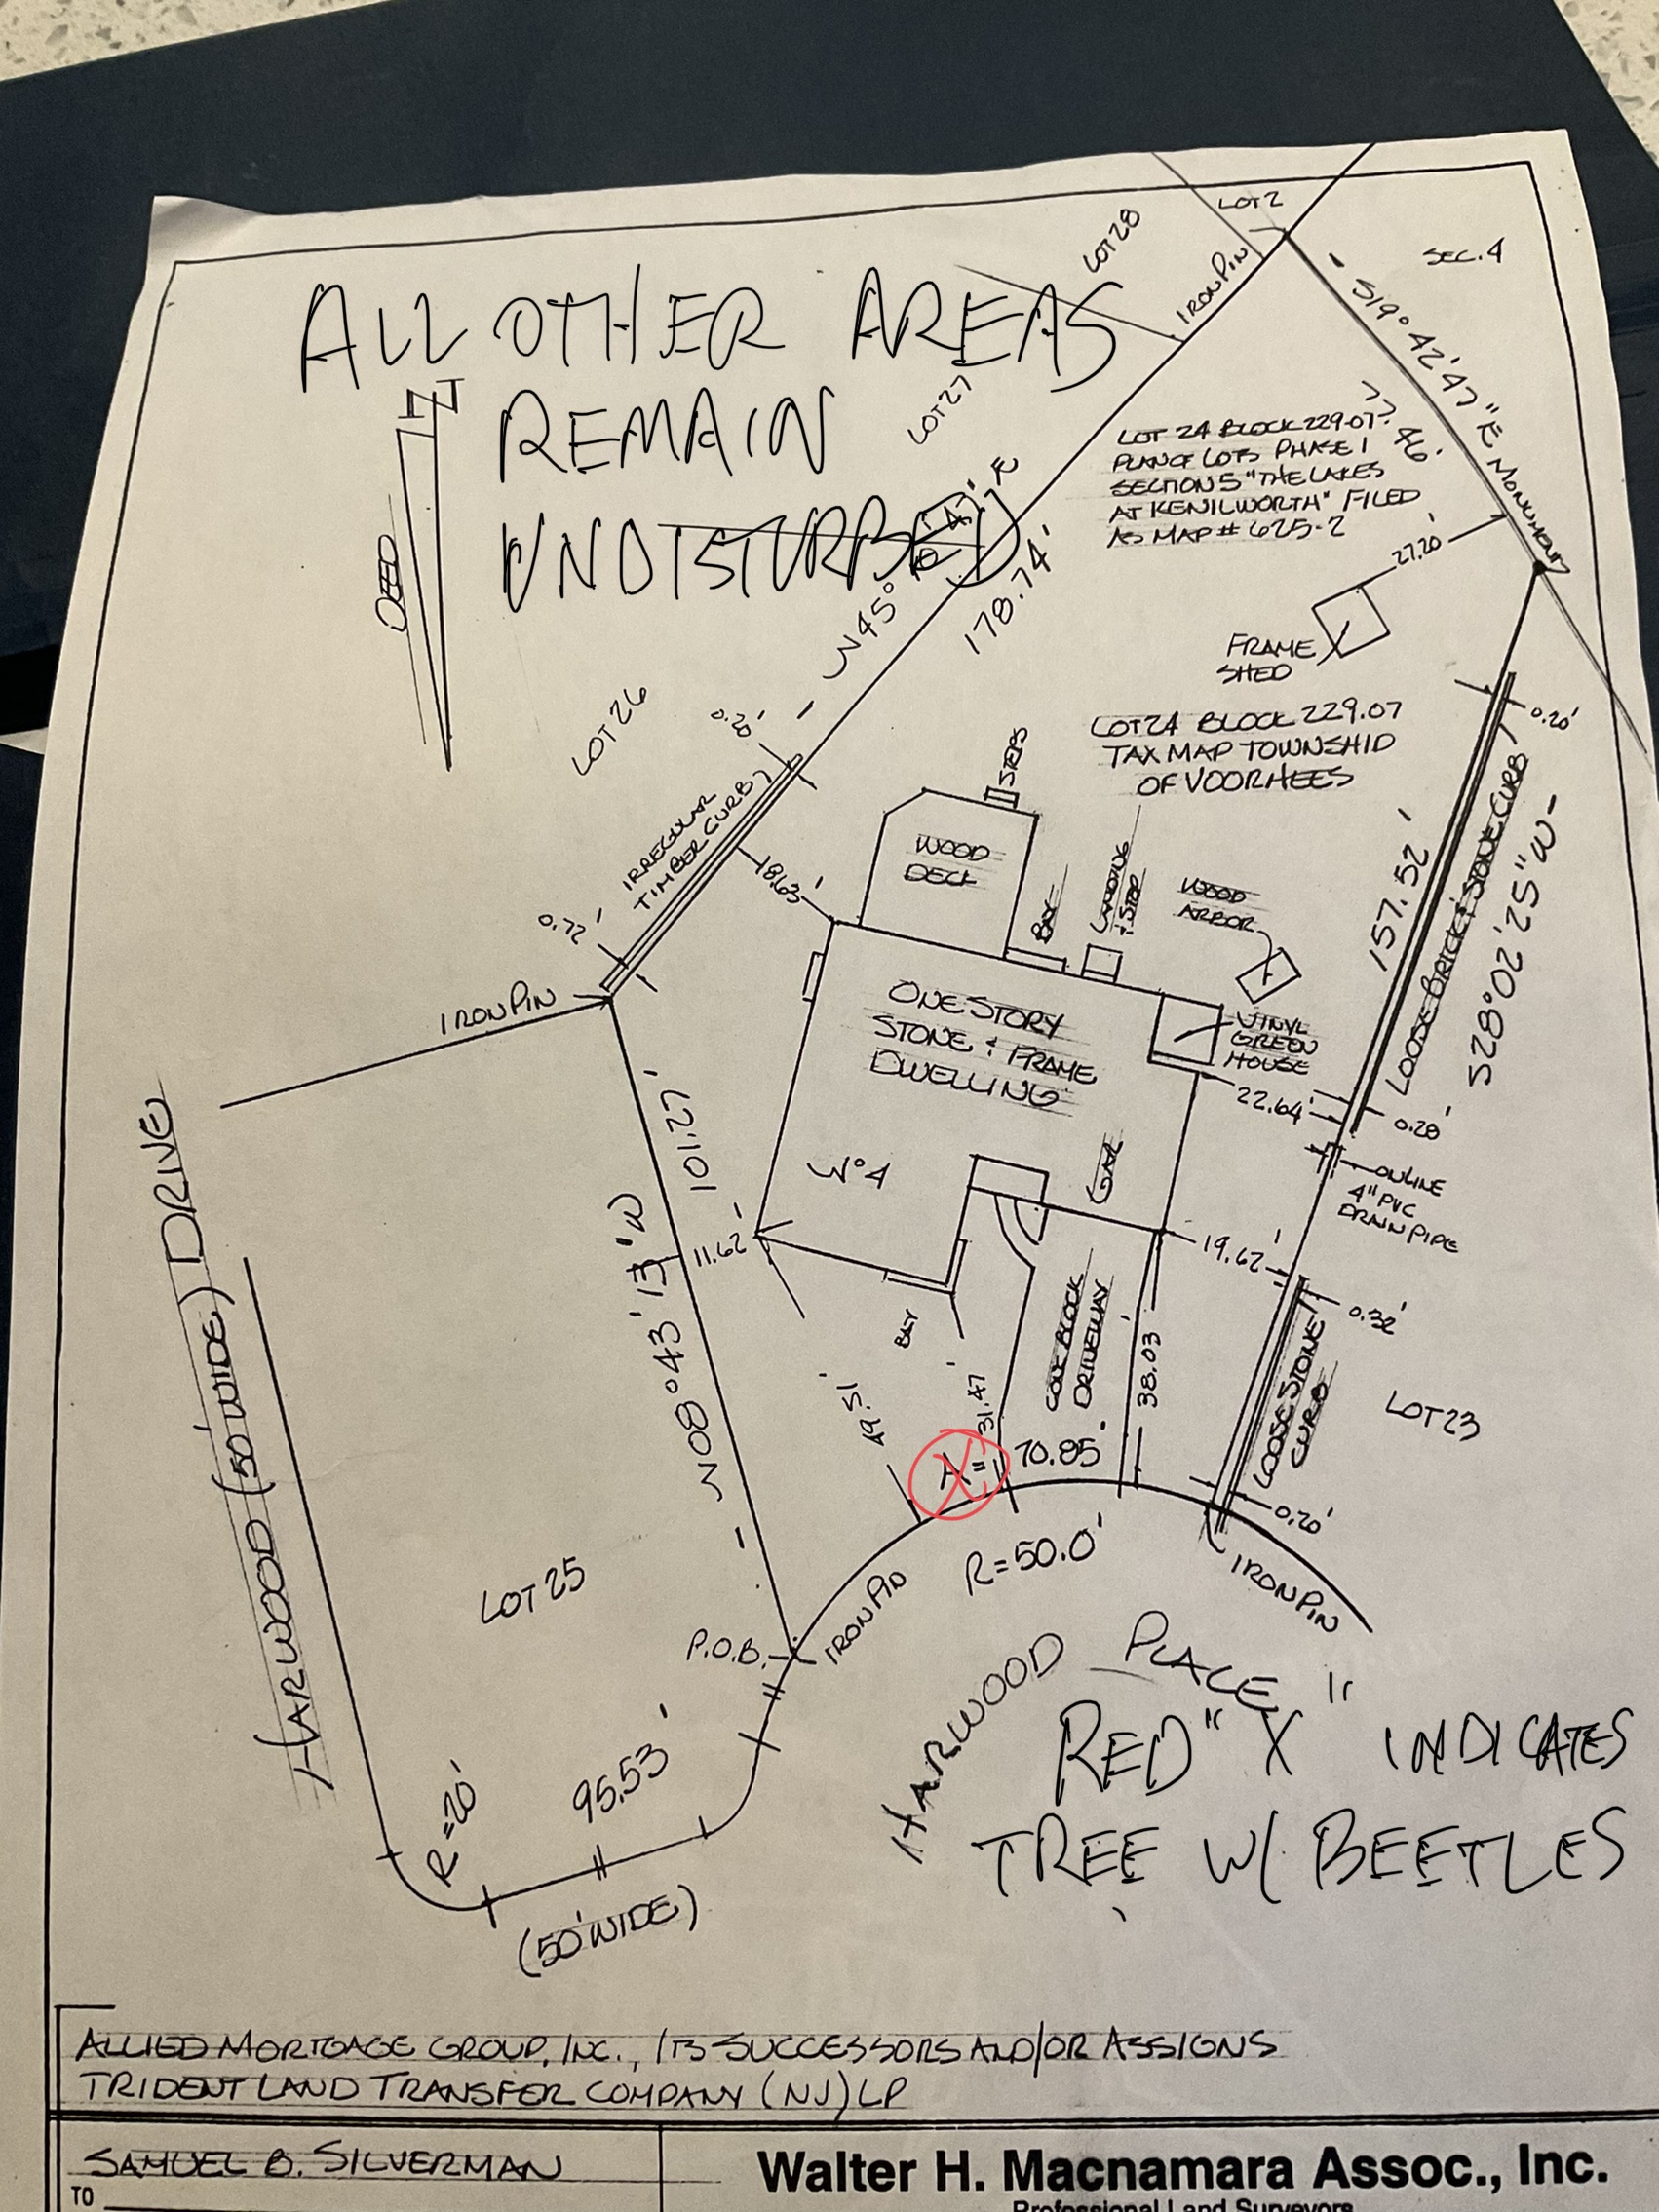 LOT 2
SEC. 4
LOT 28
IRON PIN
S19°42'47"E
77.46'
MONUMENT
ALL OTHER AREAS
REMAIN
UNDISTURBED
LOT 27
DEED
N45°
47' E
178.74'
LOT 24 BLOCK 229.07
PLAN OF LOTS PHASE 1
SECTION 5 "THE LAKES
AT KENILWORTH" FILED
AS MAP # 625-2
27.20'
FRAME
SHED
LOT 26
0.20'
IRREGULAR
TIMBER CURB
18.63'
0.72'
IRON PIN
LOT 24 BLOCK 229.07
TAX MAP TOWNSHIP
OF VOORHEES
0.20'
STEPS
WOOD
DECK
BAY
LANDING
& STEP
WOOD
ARBOR
157.52'
LOOSE BRICK & STONE CURB
S28°02'25"W
ONE STORY
STONE & FRAME
DWELLING
VINYL
GREEN
HOUSE
22.64'
0.28'
N08°43'13"W
101.27'
11.62'
No 4
GAR
ONLINE
4" PVC
DRAIN PIPE
19.62'
0.32'
BAY
CONC BLOCK
DRIVEWAY
38.03'
LOOSE STONE
CURB
LOT 23
49.51'
31.47'
X
A=
70.85'
R=50.0'
0.20'
IRON PIN
HARWOOD DRIVE
(50' WIDE)
LOT 25
P.O.B.
IRON PIN
HARWOOD PLACE
RED "X" INDICATES
TREE W/ BEETLES
R=20'
95.53'
(50' WIDE)
ALLIED MORTGAGE GROUP, INC., ITS SUCCESSORS AND/OR ASSIGNS
TRIDENT LAND TRANSFER COMPANY (NJ) LP
SAMUEL B. SILVERMAN
TO
Walter H. Macnamara Assoc., Inc.
Professional Land Surveyors